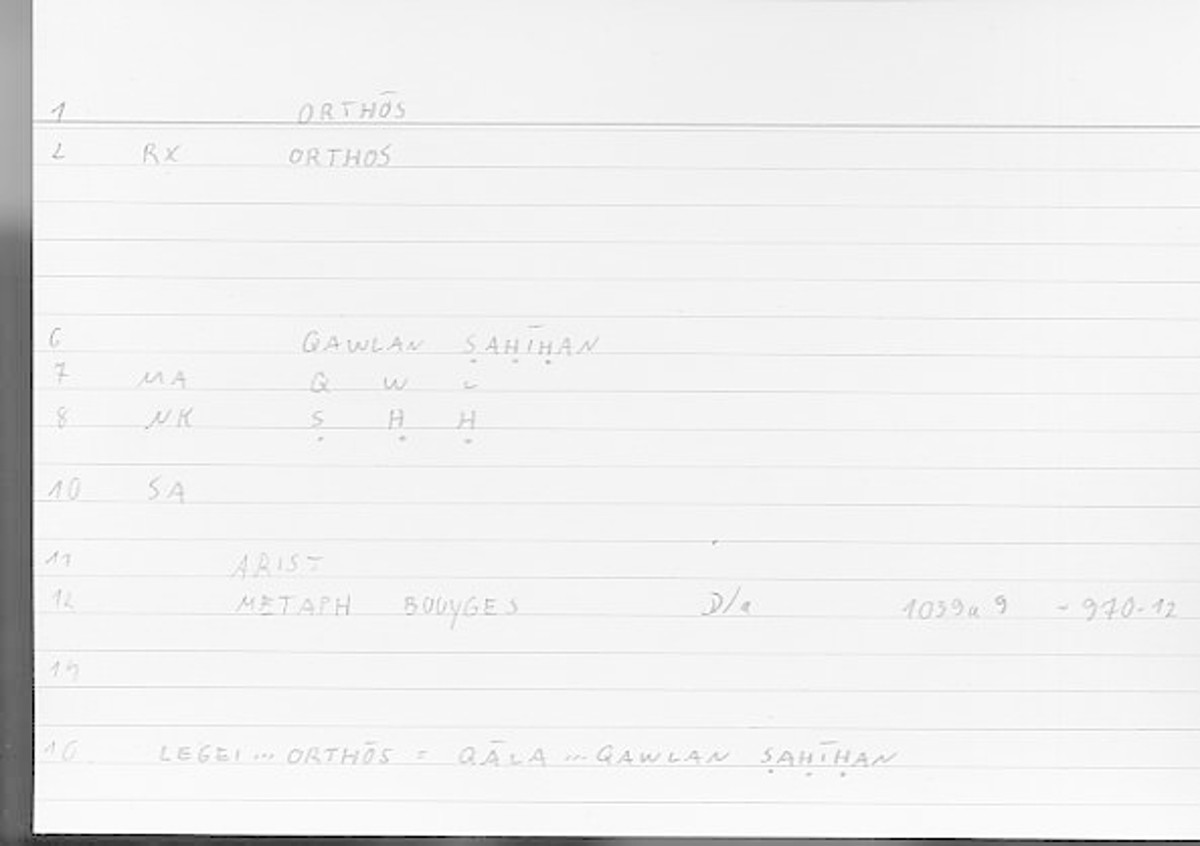 1 ORTHŌS
2 RX ORTHOS
6 QAWLAN ṢAḤĪḤAN
7 MA Q W L
8 NK Ṣ Ḥ Ḥ
10 SA
11 ARIST
12 METAPH BOUYGES D/a 1039a 9 - 970.12
14
16 LEGEI ... ORTHŌS = QĀLA ... QAWLAN ṢAḤĪḤAN